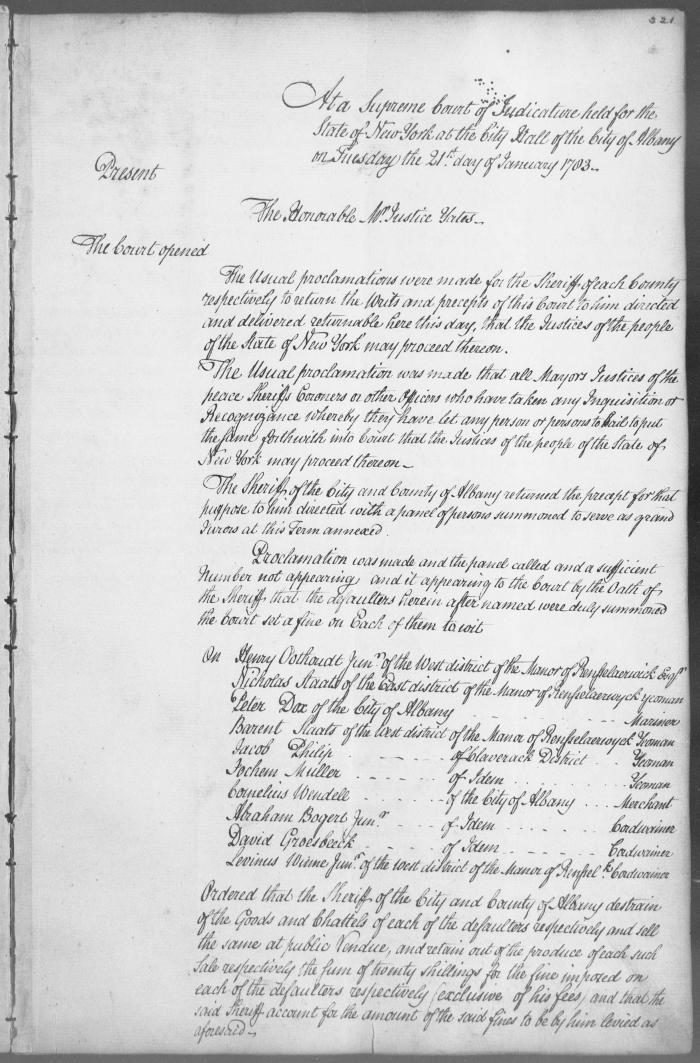 221
At a Supreme Court of Judicature held for the
State of New York at the City Hall of the City of Albany
on Tuesday the 21st day of January 1783.
Present
The Honorable Mr. Justice Yates
The Court opened
The Usual proclamations were made for the Sheriff of each County
respectively to return the Writs and precepts of this Court to him directed
and delivered returnable here this day, that the Justices of the people
of the State of New York may proceed thereon.
The Usual proclamation was made that all Mayors Justices of the
peace Sheriffs Coroners or other Officers who have taken any Inquisition or
Recognizance whereby they have let any person or persons to bail to put
the same forthwith into Court that the Justices of the people of the State of
New York may proceed thereon
The Sheriff of the City and County of Albany returned the precept for that
purpose to him directed with a panel of persons summoned to serve as grand
Jurors at this Term annexed.
Proclamation was made and the panel called and a sufficient
Number not appearing and it appearing to the Court by the Oath of
the Sheriff that the defaulters herein after named were duly summoned
the Court set a fine on Each of them to wit
On Henry Oothoudt Junr. of the West district of the Manor of Rensselaerwick Esqr.
Nicholas Staats of the East district of the Manor of Rensselaerwyck yeoman
Peter Dox of the City of Albany Mariner
Barent Staats of the West district of the Manor of Rensselaerwyck Yeoman
Jacob Philip of Claverack District Yeoman
Jochem Muller of Idem Yeoman
Cornelius Wendell of the City of Albany Merchant
Abraham Bogert Junr. of Idem Cordwainer
David Groesbeeck of Idem Cordwainer
Levinus Winne Junr. of the West district of the Manor of Renssel.k Cordwainer
Ordered that the Sheriff of the City and County of Albany destrain
of the Goods and Chattels of each of the defaulters respectively and sell
the same at public Vendue, and retain out of the produce of each such
Sale respectively the sum of twenty shillings for the fine imposed on
each of the defaulters respectively (exclusive of his fees) and that the
said Sheriff account for the amount of the said fines to be by him levied as
aforesaid